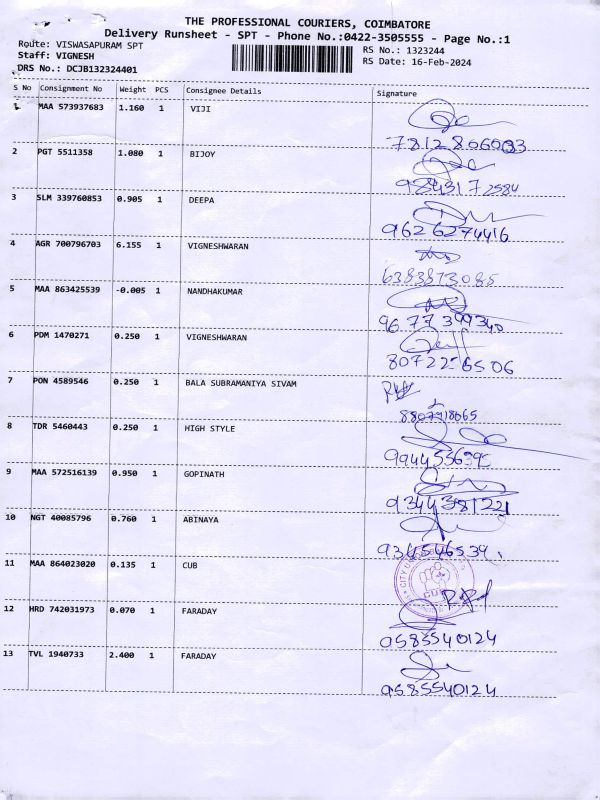 THE PROFESSIONAL COURIERS, COIMBATORE
Delivery Runsheet - SPT - Phone No.:0422-3505555 - Page No.:1
Route: VISWASAPURAM SPT RS No.: 1323244
Staff: VIGNESH RS Date: 16-Feb-2024
DRS No.: DCJB132324401
S No Consignment No Weight PCS Consignee Details Signature
1 MAA 573937683 1.160 1 VIJI
7812806033
2 PGT 5511358 1.080 1 BIJOY
9843172584
3 SLM 339760853 0.905 1 DEEPA
9626274416
4 AGR 700796703 6.155 1 VIGNESHWARAN
6383873085
5 MAA 863425539 -0.005 1 NANDHAKUMAR
96.77399340
6 PDM 1470271 0.250 1 VIGNESHWARAN
8072256506
7 PON 4589546 0.250 1 BALA SUBRAMANIYA SIVAM
8807918065
8 TDR 5460443 0.250 1 HIGH STYLE
9 MAA 572516139 0.950 1 GOPINATH
9344381221
10 NGT 40085796 0.760 1 ABINAYA
934546539
11 MAA 864023020 0.135 1 CUB
CITY U
CUB
12 HRD 742031973 0.070 1 FARADAY
9585540124
13 TVL 1940733 2.400 1 FARADAY
9585540124